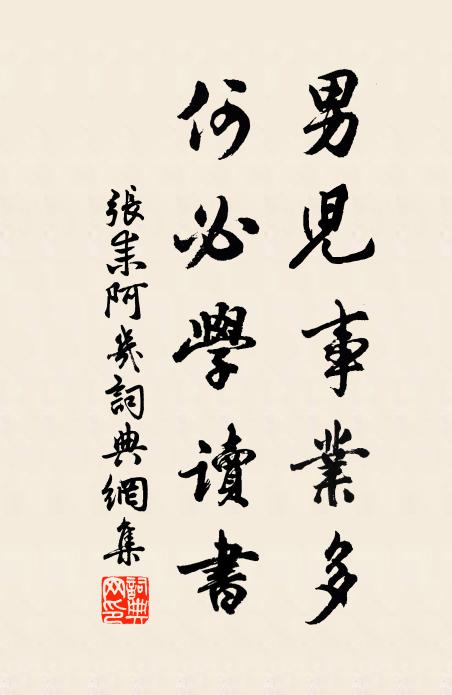 男児事業多
何必學讀書
張耒阿幾詞典網集
詞典
网印